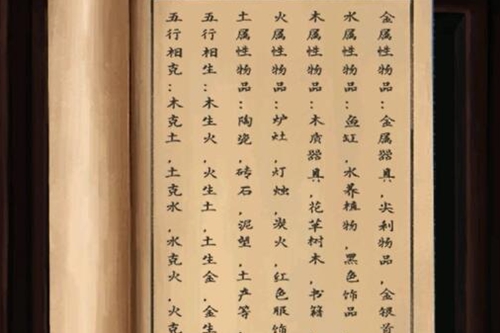 金属性物品:金属器具,尖利物品,金银首
水属性物品:鱼缸,水养植物,黑色饰品
木属性物品:木质器具,花草树木,书籍
火属性物品:炉灶,灯烛,炭火,红色服饰
土属性物品:陶瓷,砖石,泥塑,土产等
五行相生:木生火,火生土,土生金,金生
五行相克:木克土,土克水,水克火,火克